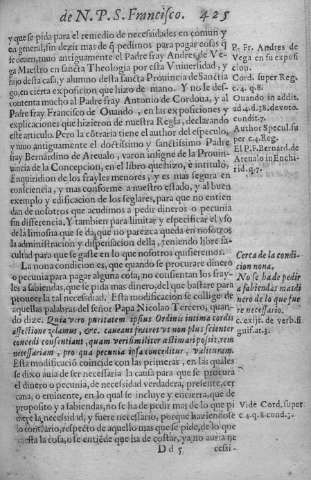 de N. P. S. Francisco. 425
y que se pida para el remedio de necesidades en comun y
en general, sin dezir mas q̃ pedimos para pagar cosas q̃
se deuen, tuuo antiguamente el Padre fray Andres de Ve-
ga Maestro en sancta Theologia por esta Vniuersidad, y
hijo desta casa, y alumno desta sancta Prouincia de Sanctia
go, en cierta exposicion que hizo de mano. Y no le des-
contenta mucho al Padre fray Antonio de Cordoua, y al
Padre fray Francisco de Ouando, en las exposiciones y
explicaciones que hizieron de nuestra Regla, declarando
este articulo. Pero la cõtraria tiene el author del speculo,
y tuuo antiguamente el doctissimo y sanctissimo Padre
fray Bernardino de Areualo, varon insigne de la Prouin-
uincia de la Concepcion, en el libro que hizo, è intitulò,
Enquiridion de los frayles menores, y es mas segura en
consciencia, y mas conforme a nuestro estado, y al buen
exemplo y edificacion de los seglares, para que no entien
dan de nosotros que acudimos a pedir dinero o pecunia
sin differencia. Y tambien para limitar y especificar el vso
de la limosna que se da, que no parezca queda en nosotros
la administracion y dispensacion della, teniendo libre fa-
cultad para que se gaste en lo que nosotros quisieremos.
La nona condicion es, que quando se procurare dinero
o pecunia para pagar alguna cosa, no consientan los fray-
les a sabiendas, que se pida mas dinero, del que bastare para
proueer la tal necessidad. Esta modificacion se collige de
aquellas palabras del señor Papa Nicolao Tercero, quan-
do dize. Quia vero puritatem ipsius Ordinis intima cordis
affectione zelamus, &c. caueant fratres vt non plus scienter
concedi consentiant, quam verisimiliter æstimari possit, rem
necessariam, pro qua pecunia ipsa conceditur, valituram.
Esta modificacio coincide con las primeras, en las quales
se dixo auia de ser necessaria la causa para que se procura
el dinero o pecunia, de necessidad verdadera, presente, cer
cana, o eminente, en lo qual se incluye y encierra, que de
proposito y a sabiendas, no se ha de pedir mas de lo que pi
diere la necessidad, y fuere necessario, porque haziendose
lo contrario, respecto de aquello mas que se pide, de lo que
cuesta la cosa, o se entiẽde que ha de costar, ya no auria ne
D d 5 cessi-
P. Fr. Andres de
Vega en su exposi
cion.
Cord. super Reg.
c. 4. q. 8.
Ouando in addit.
Author Specul. su
per c. 4. Reg.
El P. F. Bernard. de
Cerca de la condi-
cion nona.
No se ha de pedir
a sabiendas mas di
nero de lo que fue
re necessario.
Vide Cord. super